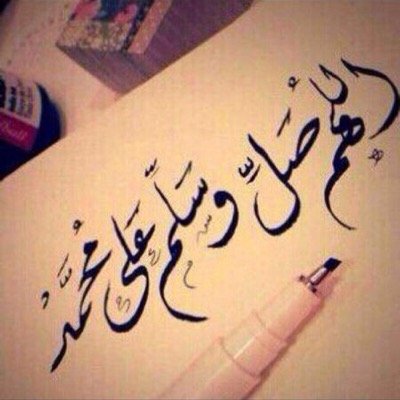 اللهم صَلِّ وسَلِّم عَلى مُحمَّدٍ